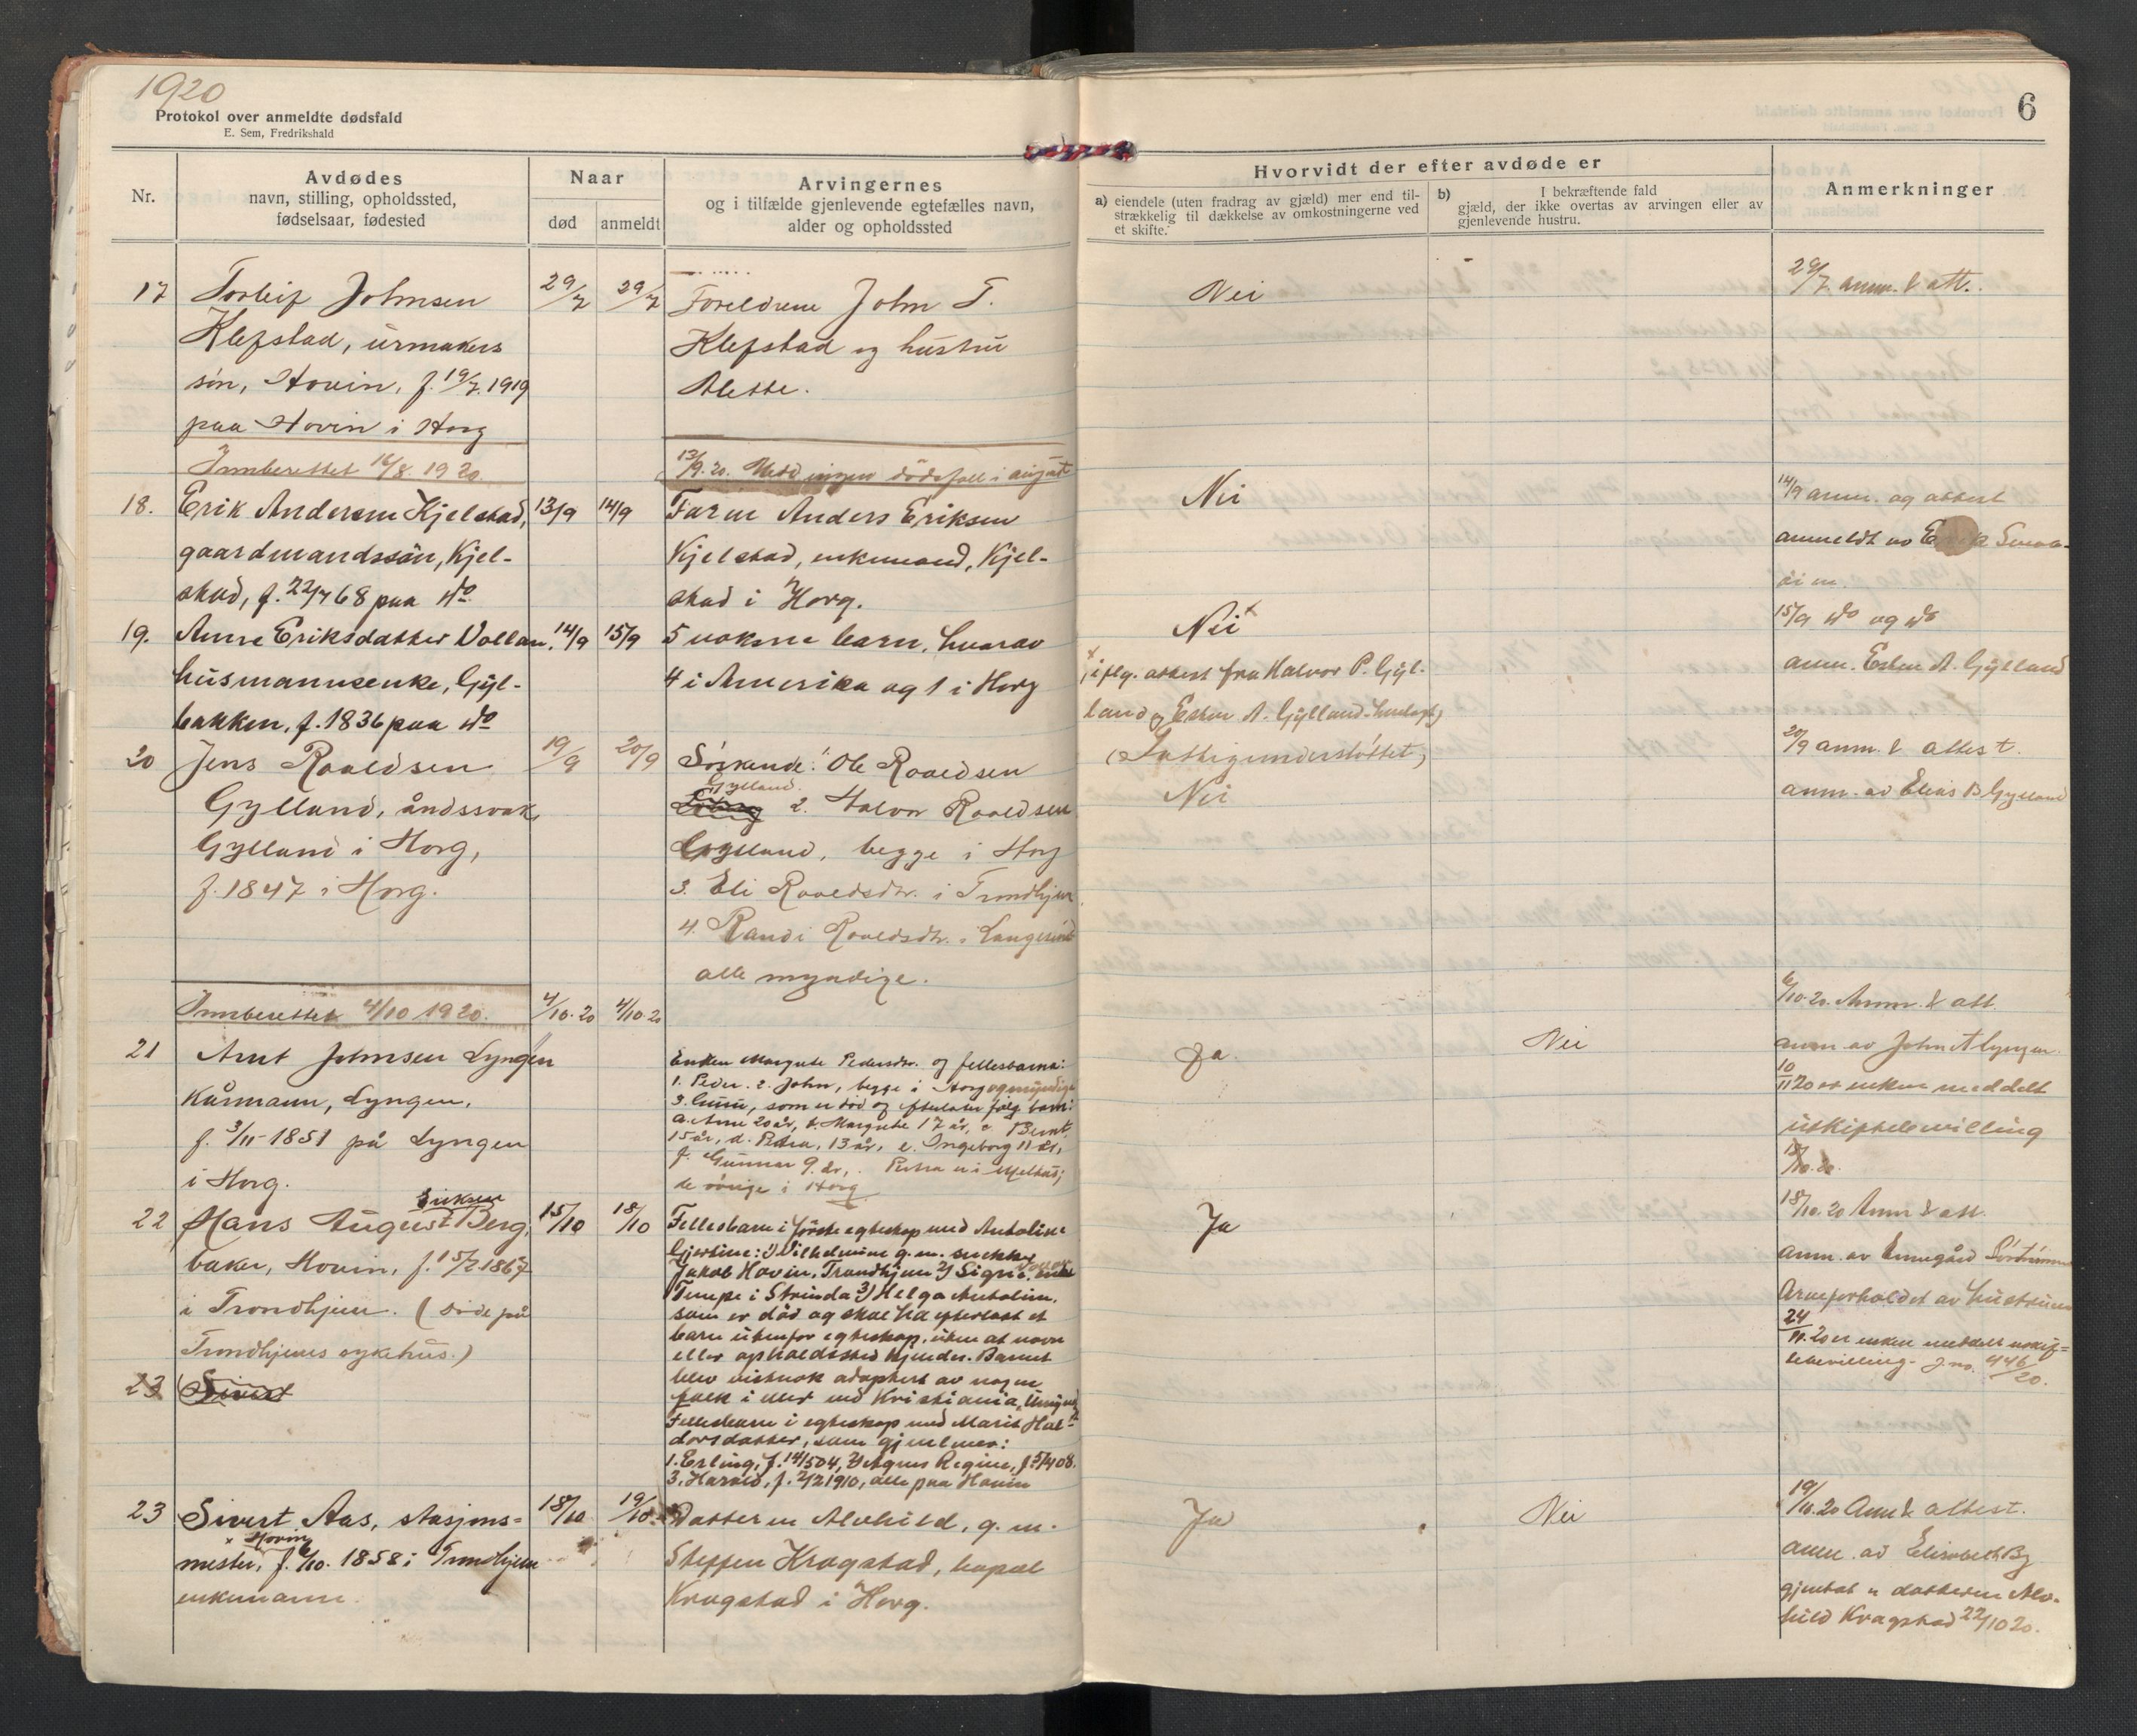 1920
Protokol over anmeldte dødsfald
E. Sem, Fredrikshald
6
Nr.
Avdødes
navn, stilling, opholdssted,
fødselsaar, fødested
Naar
død
anmeldt
Arvingernes
og i tilfælde gjenlevende egtefælles navn,
alder og opholdssted
Hvorvidt der efter avdøde er
a) eiendele (uten fradrag av gjæld) mer end til-
strækkelig til dækkelse av omkostningerne ved
et skifte.
b) I bekræftende fald
gjæld, der ikke overtas av arvingen eller av
gjenlevende hustru.
Anmerkninger
17 Torleif Johnsen
Klefstad, urmakers
søn, Hovin, f. 19/7. 1919
paa Hovin i Horg
29/7 29/7
Foreldrene John T.
Klefstad og hustru
Alette.
Nei
29/7 anm. & att.
Innberettet 16/8. 1920.
13/9. 20. Medd ingen dödsfall i august
18. Erik Andersen Kjelstad,
gaardmandssön, Kjel-
stad, f. 22/7 68 paa do.
13/9 14/9
Faren Anders Eriksen
Kjelstad, enkemand, Kjel-
stad i Horg.
Nei
14/9 anm. og attest
anmeldt av
19. Anne Eriksdatter Vollan,
husmannsenke, Gyl-
bakken, f. 1836 paa do
14/9 15/9
5 voksne barn, hvorav
4 i Amerika og 1 i Horg
Nei x
x iflg. attest fra Halvor P. Gyl-
land og Esten A. Gylland
(Fattigunderstöttet)
15/9 do og do
anm. Esten A. Gylland
20 Jens Roaldsen
Gylland, åndssvak,
Gylland i Horg,
f. 1847 i Horg.
19/9 20/9
Söskende: Ole Roaldsen
Gylland.
2. Halvor Roaldsen
Gylland, begge i Horg
3. Eli Roaldsdtr. i Trondhjem
4. Randi Roaldsdtr. i Langesund
alle myndige.
Nei
20/9 anm. & attest.
anm. av Elias B Gylland
Innberettet 4/10 1920.
4/10. 20 4/10. 20
21 Arnt Johnsen Lyngen
Kårmann, Lyngen,
f. 3/11-1851 på Lyngen
i Horg.
Enken Margrete Pedersdtr. og fellesbarna:
1. Peder. 2. John, begge i Horg og myndige
3. som er död og efterlater fölg barn:
a. Anne 20 år, b. Margrete 17 år, c Bernt
15 år, d. Petra, 13 år, e. Ingeborg 11 år,
f. Gunnar 9 år, Petra er i Melhus;
de övrige i Horg
Ja
Nei
6/10. 20. Anm. & att.
anm av John A Lyngen.
10/11 20 er enken meddelt
uskiftebevilling
22 Hans August Eriksen Berg,
baker, Hovin, f. 15/2 1867
i Trondhjem. (döde på
Trondhjems sykehus.)
15/10 18/10
Fellesbarn i förste egteskap med Antoline
Gjertine: 1) Vilhelmine g. m. snekker
Jakob Hovin, Trondhjem 2) Signe,
Tempe i Strinda 3) Helga Antoline,
som er död og skal ha efterlatt et
barn utenfor egteskap, uten at navn
eller opholdssted kjendes. Barnet
blev vistnok adoptert av nogen
folk i eller ved Kristiania,
Fellesbarn i egteskap med Marit Hal-
dorsdatter, som gjenlever:
1. Erling, f. 14/5 04, 2) Agnes Regine, f 5/4 08.
3. Harald, f. 2/2 1910, alle paa Hovin
Ja
18/10. 20 Anm & att.
anm. av
Arveforholdet av hustruen
24/11. 20 er enken meddelt uskif=
tebevilling - J. no. 446/20.
23 Sivert
23 Sivert Aas, stasjons=
x Hovin
mester, f. 6/10. 1858 i Trondhjem
enkemann.
18/10 19/10
Datteren Alvhild, g. m.
Steffen Kragstad, kapel
Kragstad i Horg.
Ja
Nei
19/10. 20 Anm & attest.
anm. av Elisabeth By
gjenlat er datteren Alv-
hild Kragstad 22/10 20.